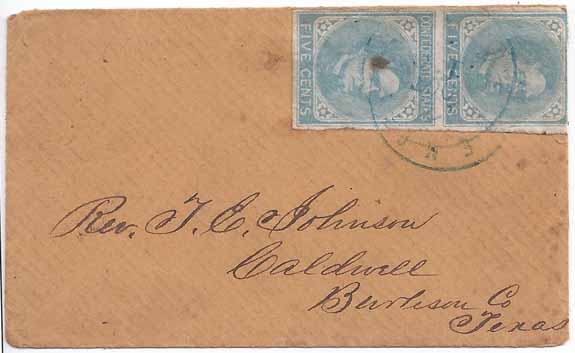 FIVE CENTS
CONFEDERATE STATES
FIVE CENTS
Rev. T. E. Johnson
Caldwell
Burleson Co
Texas